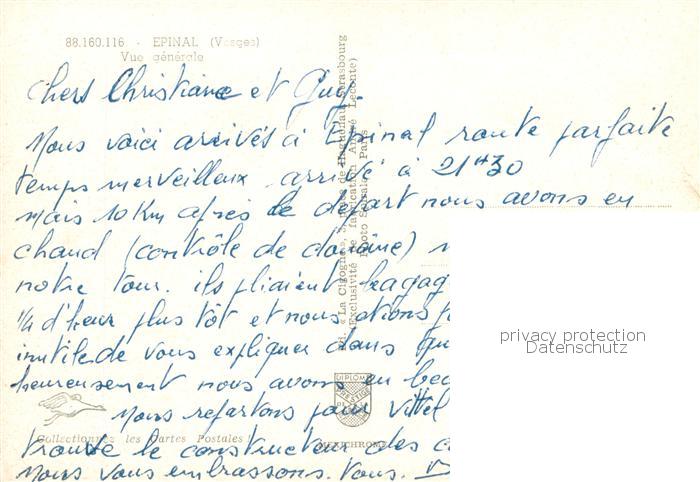 88.160.116 - EPINAL (Vosges)
Vue générale
Chers Christiane et Guy.
Nous voici arrivés à Epinal route parfaite
temps merveilleux arrivé à 21H30
Mais 10 Km après le départ nous avons eu
chaud (contrôle de douane)
notre tour. ils pliaient bagag
1/4 d'heur plus tôt et nous étions
inutile de vous expliquer dans
heureusement nous avons eu
Nous repartons pour Vittel
trouve le constructeur des
Nous vous embrassons. Vous.
Ed. « La Cigogne », de Haguenau, Strasbourg
(Exclusivité de fabrication André Leconte)
Photo Paris
DIPLOME
PRESTIGE
MEXICHROME
Collectionnez les Cartes Postales !
privacy protection
Datenschutz